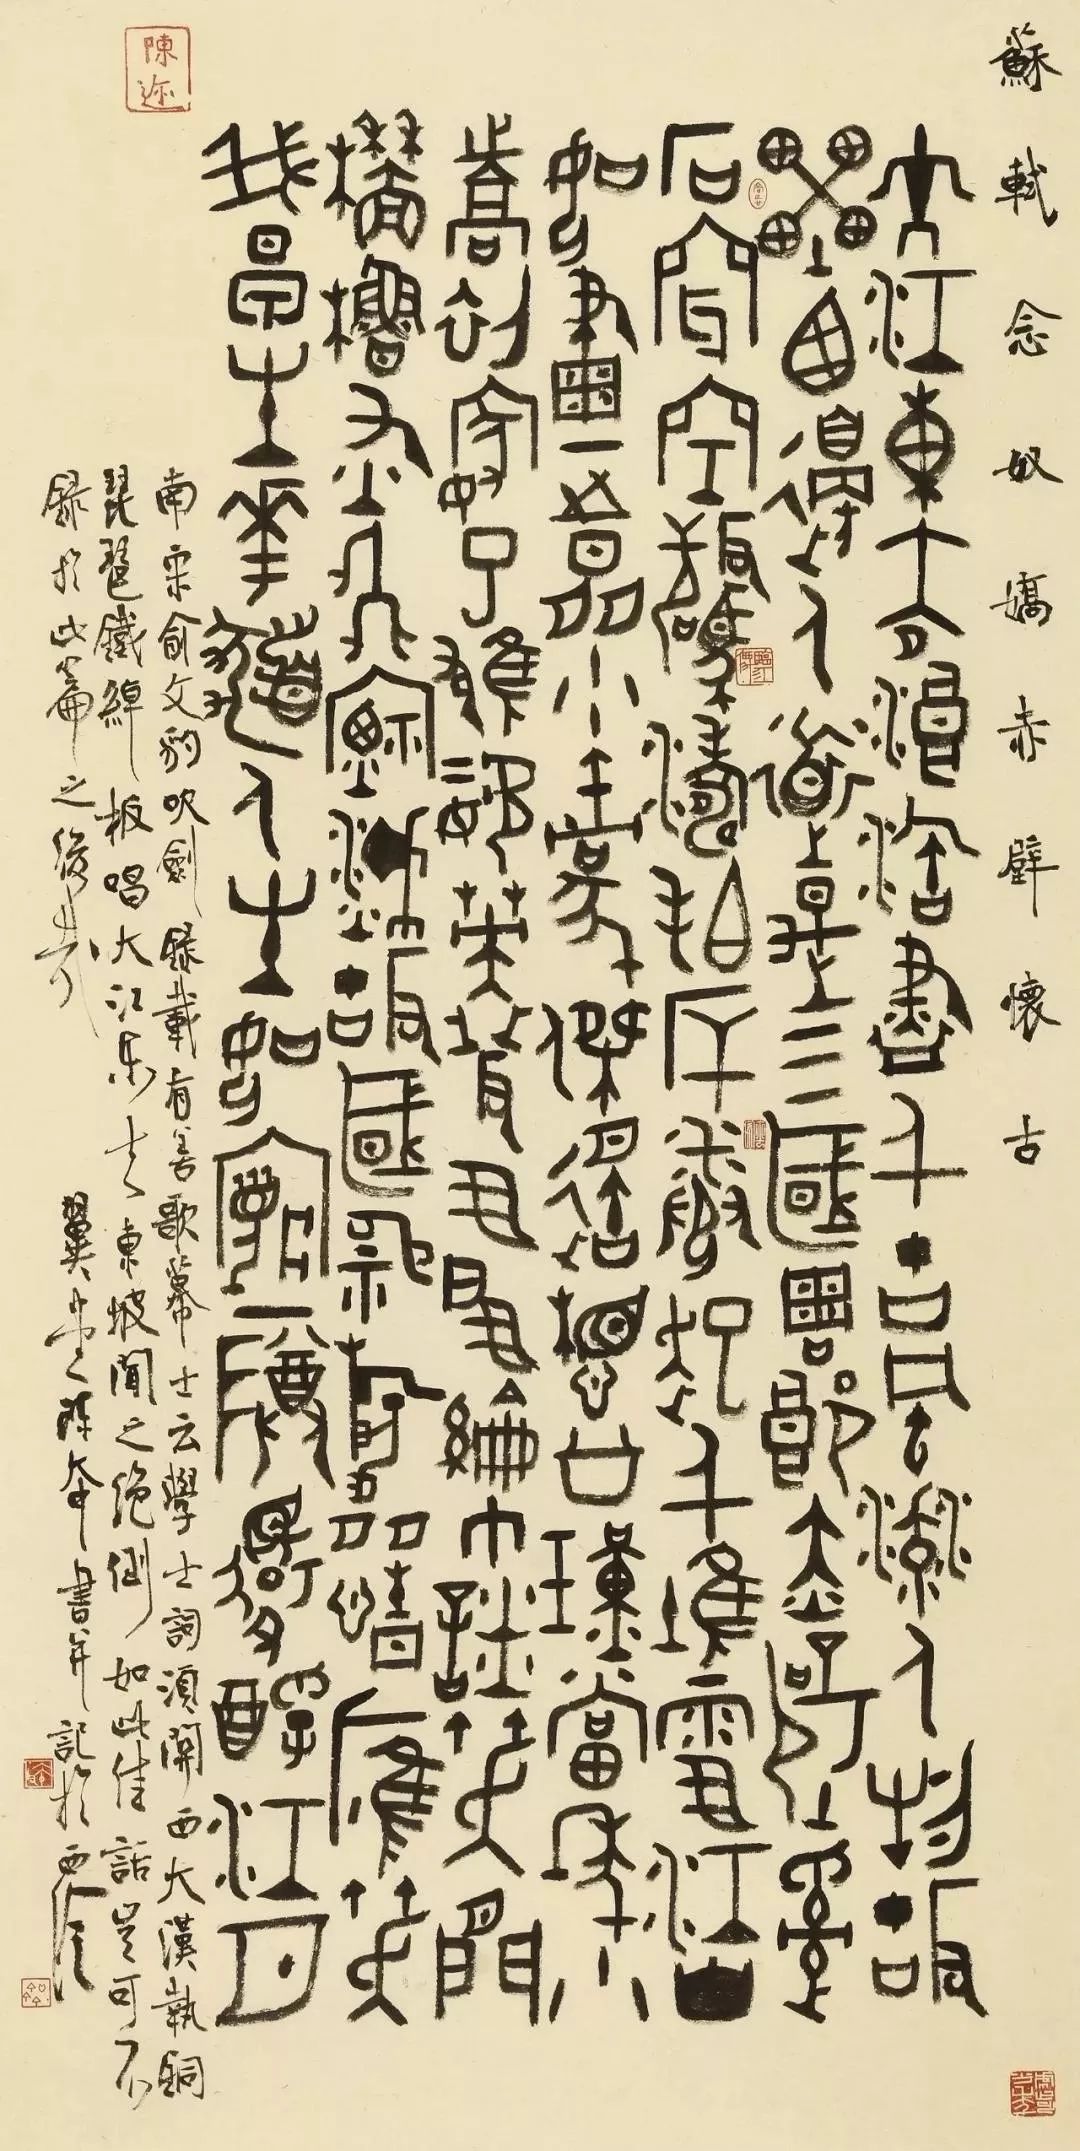 蘇軾念奴嬌赤壁懷古
大江東去浪淘盡千古風流人物故
壘西邊人道是三國周郎赤壁亂
石穿空驚濤拍岸捲起千堆雪江山
如畫一時多少豪傑遙想公瑾當年小
喬初嫁了雄姿英發羽扇綸巾談笑間
檣櫓灰飛煙滅故國神遊多情應笑
我早生華髮人生如夢一尊還酹江月
南宋俞文豹吹劍錄載有善歌幕士云學士詞須關西大漢執銅
琵琶鐵綽板唱大江東去東坡聞之絕倒如此佳話豈可不
錄於此篇之後哉 書并記於西泠
陳迹